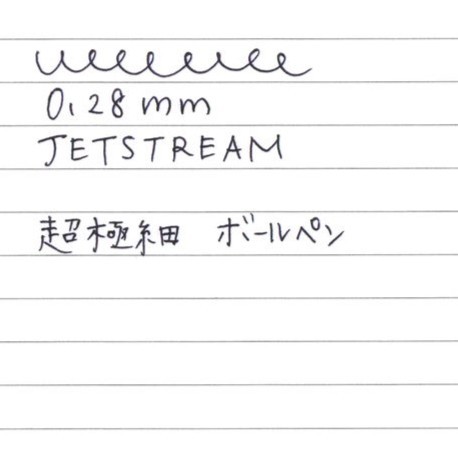 0.28mm
JETSTREAM
超極細 ボールペン